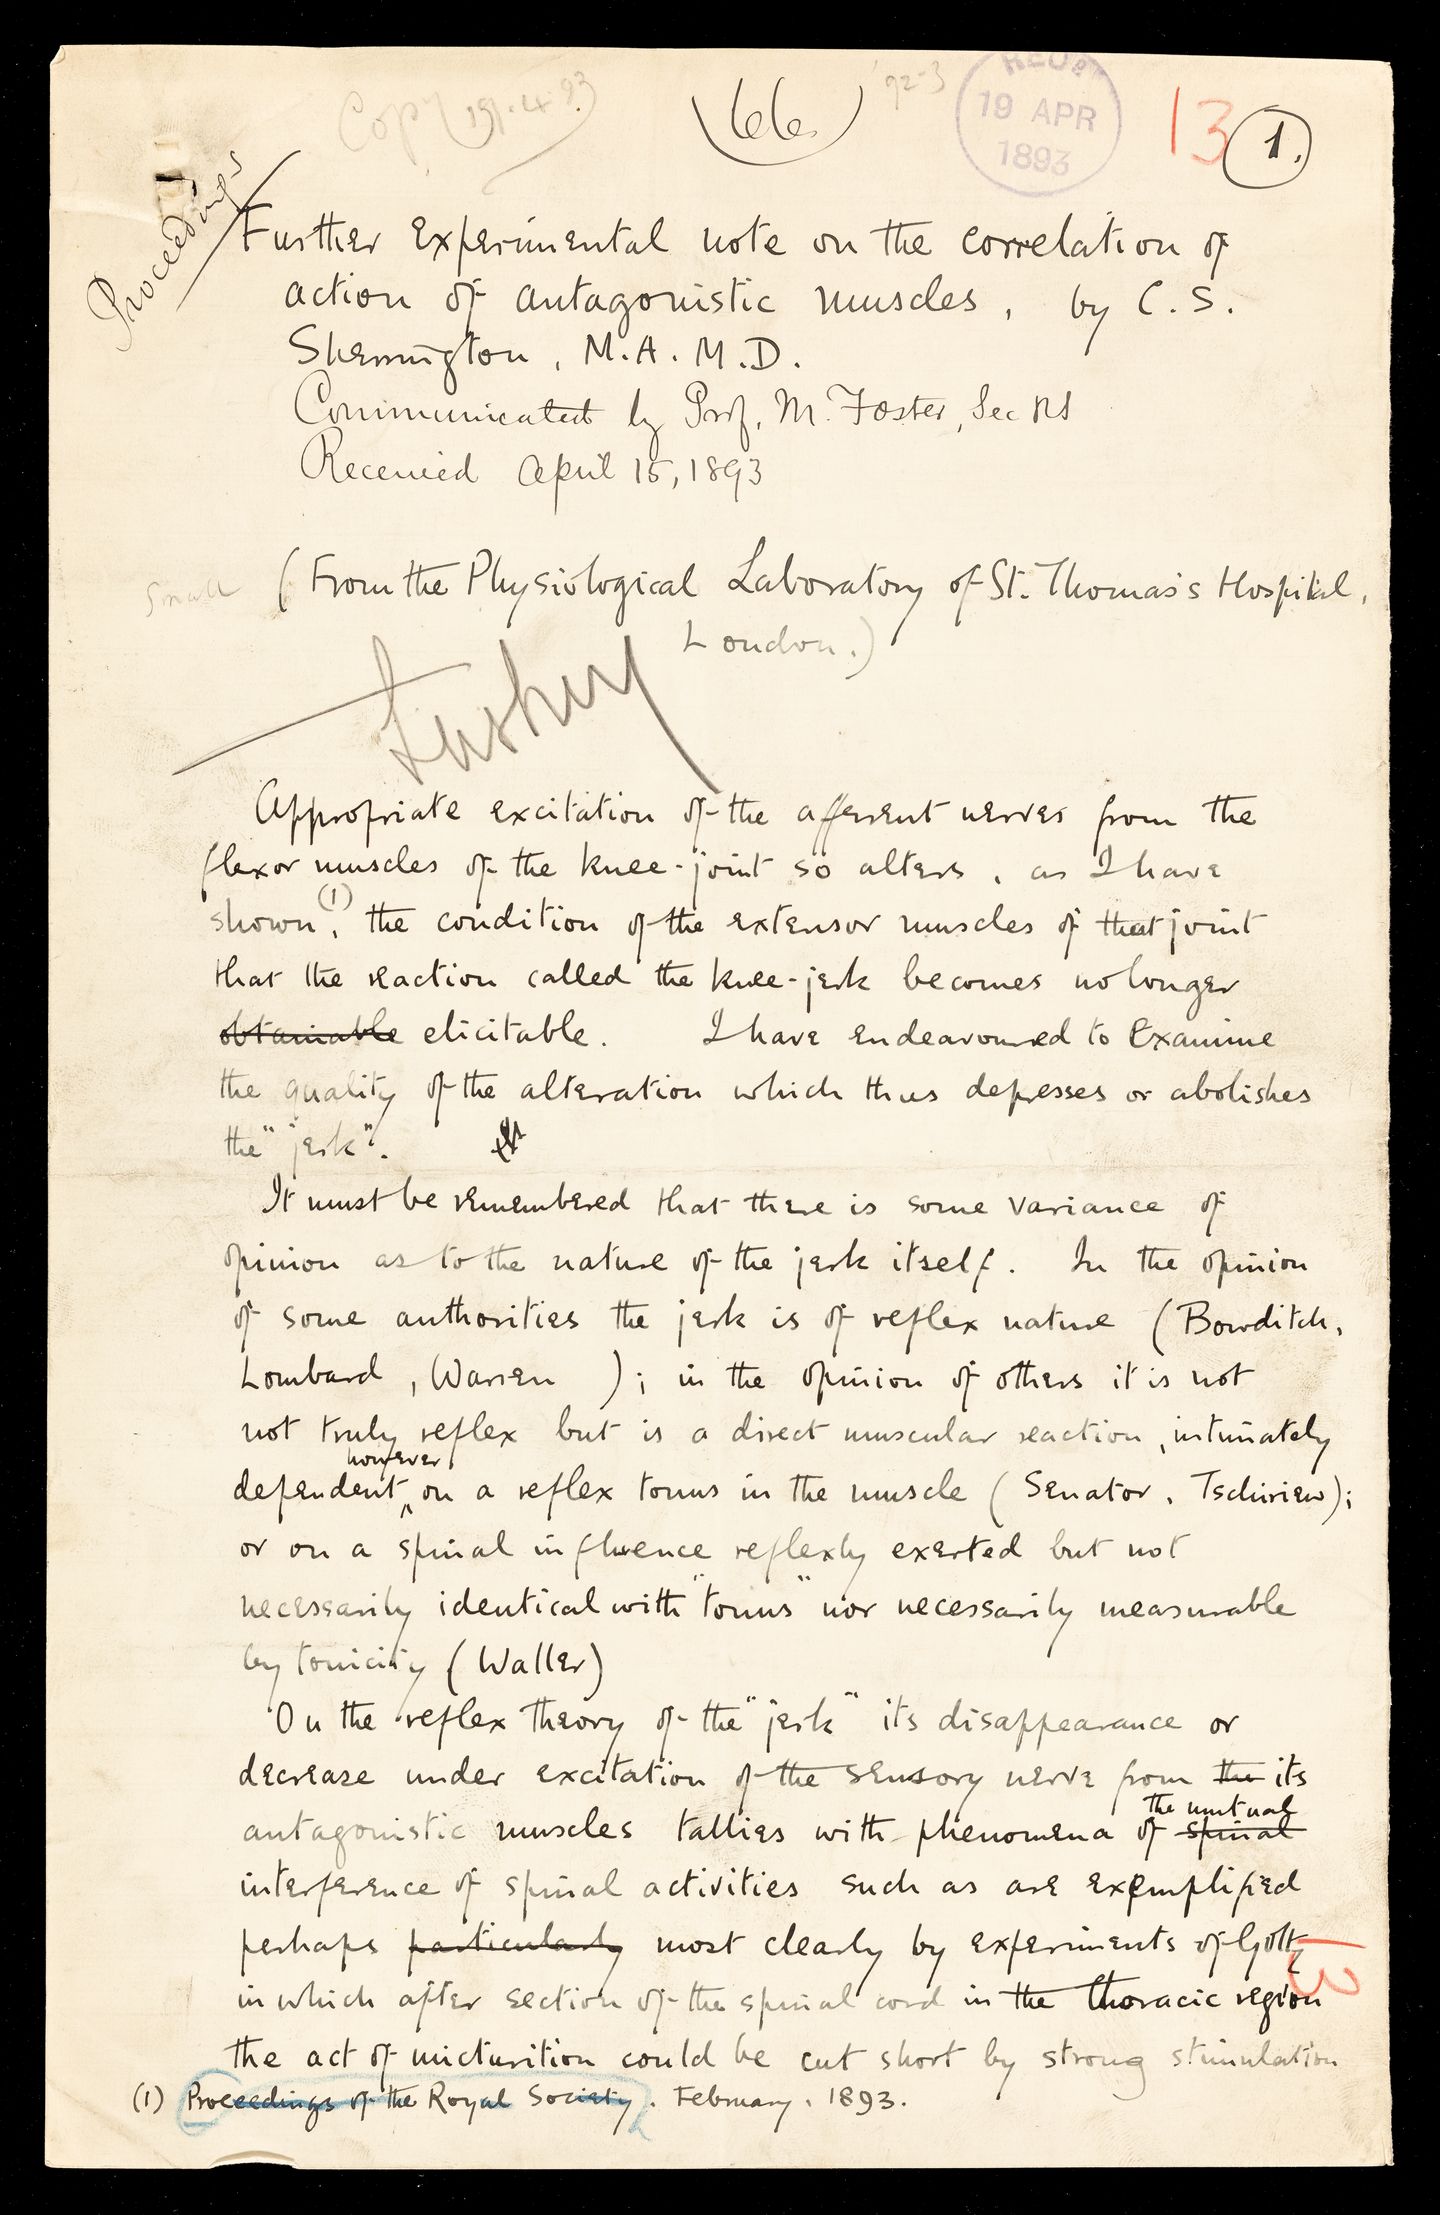 Copy 19.4.93
(66)
92-3
RECD
19 APR
1893
13
1.
Proceedings
Further experimental note on the correlation of
action of antagonistic muscles, by C. S.
Sherrington, M.A. M.D.
Communicated by Prof. M. Foster, Sec RS
Received April 15, 1893
small
(From the Physiological Laboratory of St. Thomas's Hospital,
London.)
Appropriate excitation of the afferent nerves from the
flexor muscles of the knee-joint so alters, as I have
shown(1), the condition of the extensor muscles of that joint
that the reaction called the knee-jerk becomes no longer
obtainable elicitable. I have endeavoured to examine
the quality of the alteration which thus depresses or abolishes
the "jerk".
It must be remembered that there is some variance of
opinion as to the nature of the jerk itself. In the opinion
of some authorities the jerk is of reflex nature (Bowditch,
Lombard, Warren ); in the opinion of others it is not
not truly reflex but is a direct muscular reaction, intimately
however
dependent on a reflex tonus in the muscle (Senator, Tschiriew);
or on a spinal influence reflexly exerted but not
necessarily identical with "tonus" nor necessarily measurable
by tonicity (Waller)
On the reflex theory of the "jerk" its disappearance or
decrease under excitation of the sensory nerve from the its
the mutual
antagonistic muscles tallies with phenomena of spinal
interference of spinal activities such as are exemplified
perhaps particularly most clearly by experiments of Goltz
13
in which after section of the spinal cord in the thoracic region
the act of micturition could be cut short by strong stimulation
(1) Proceedings of the Royal Society. February, 1893.